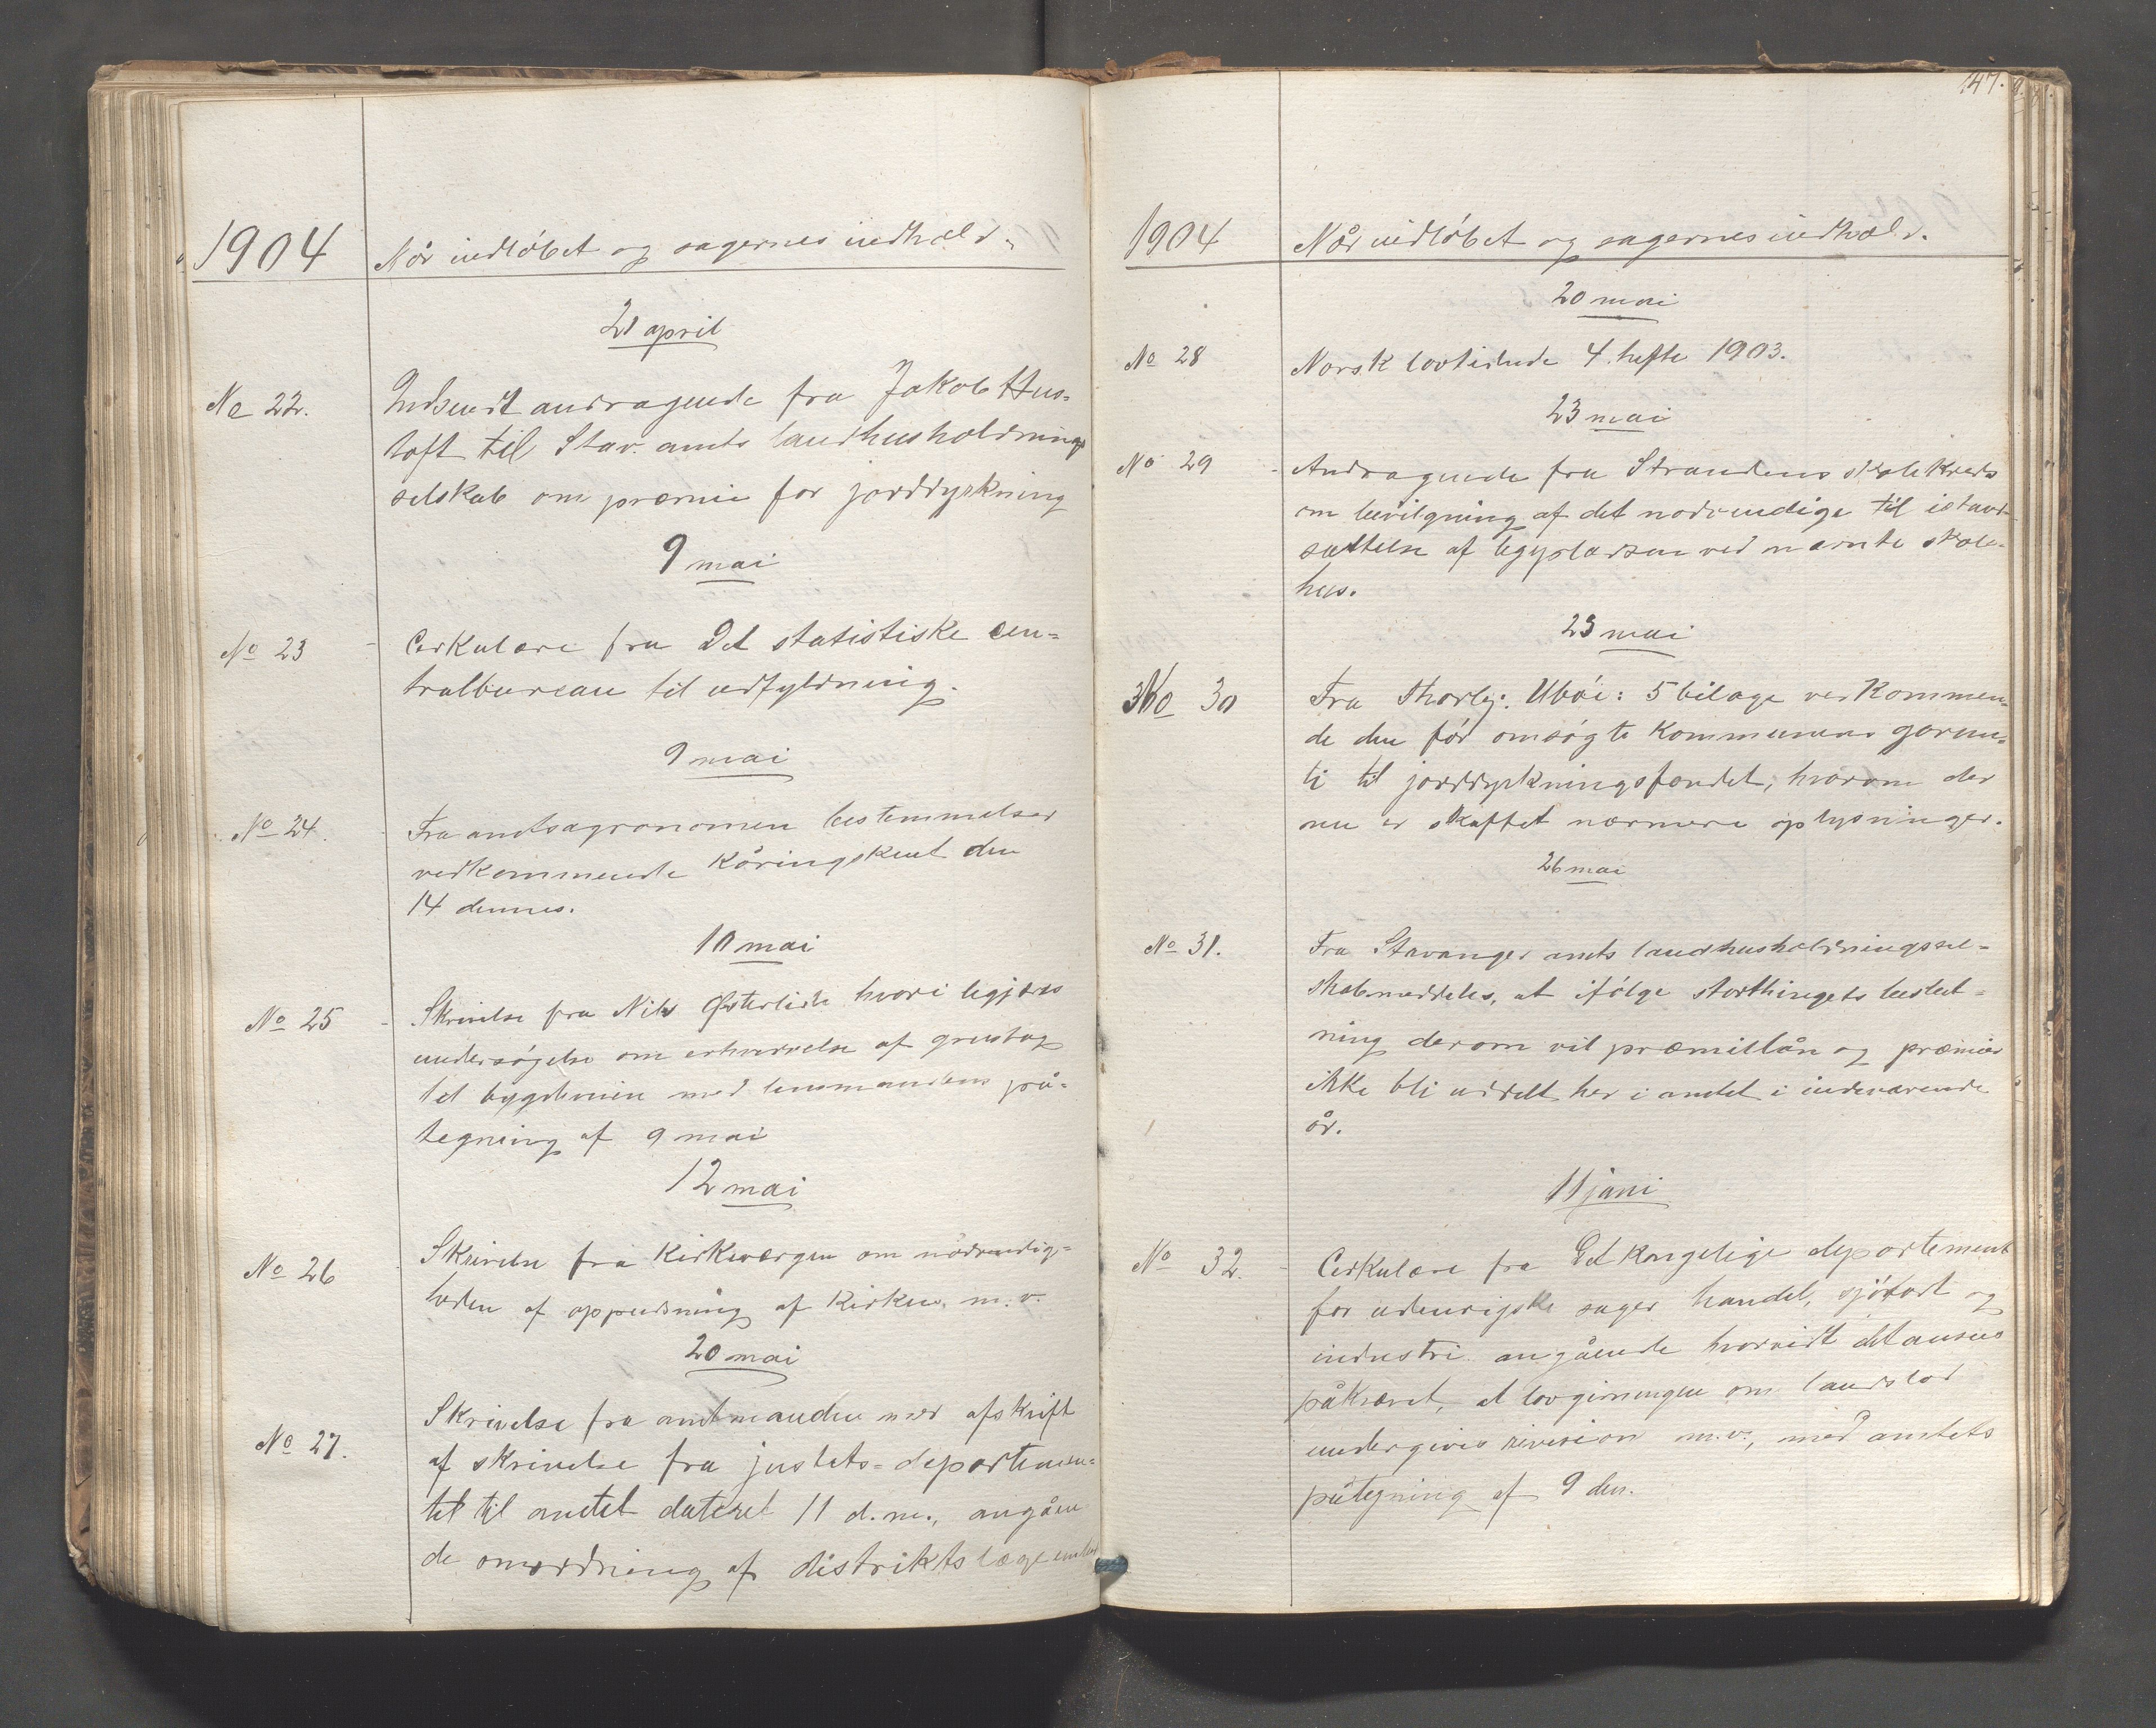 1904
Når indløbet og sagernes indhold.
21 april
No 22.
Indsendt andragende fra Jakob Hus-
toft til Stav. amts landhusholdnings
selskab om præmie for jorddyrkning
9 mai
No 23
Cerkulære fra Det statistiske cen=
tralbureau til udfyldning.
9 mai
No 24.
Fra amtsagronomen bestemmelser
vedkommende Kåringskuet den
14 dennes.
10 mai
No 25
Skrivelse fra Nils Østerlide hvori begjæres
undersøgelse om erhvervelse af grustag
til bygdeveien med lensmandens på=
tegning af 9 mai
12 mai
No 26
Skrivelse fra Kirkeværgen om nødvendig=
heden af oppudsning af Kirken. m.v.
20 mai
No 27.
Skrivelse fra amtmanden med afskrift
af skrivelse fra justets=departemen=
tet til amtet dateret 11 d.m., angåen
de omordning af distriktslæge
147.
1904
Når indløbet og sagernes indhold.
20 mai
No 28
Norsk lovtidende 4. hefte 1903.
23 mai
No 29
Andragende fra Strandens skolekreds
om bevilgning af det nødvendige til istand-
sættelse af ved nævnte skole-
hus.
23 mai
No 30
Fra Thorbj. Ubøe: 5 bilage vedkommen=
de den før omsøgte Kommunens garan=
ti til jorddyrkningsfondet, hvorom der
nu er skaffet nærmere oplysninger.
26 mai
No 31.
Fra Stavanger amts landhusholdningssel=
skab meddeles, at ifølge storthingets beslut=
ning derom vil præmielån og præmier
ikke bli uddelt her i amtet i indeværende
år.
11 juni
No 32.
Cerkulære fra Det Kongelige departement
for udenrigske sager handel, sjøfart og
industri angående hvorvidt det ansees
påkrævet, at lovgivningen om landslod
undergives revision m.v., med amtets
påtegning af 9 den.